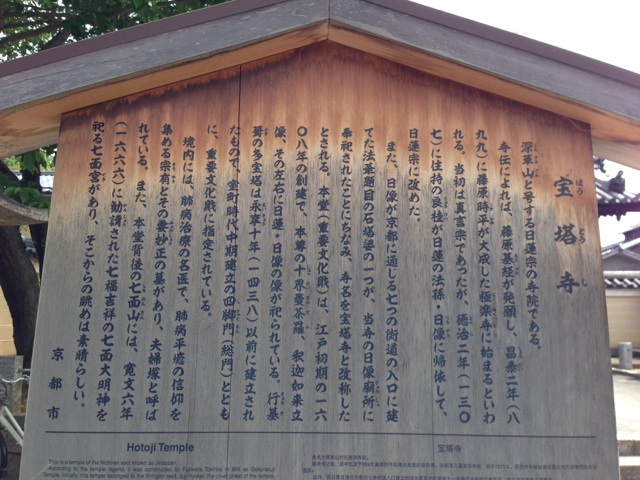 宝塔寺
ほうとうじ
深草山と号する日蓮宗の寺院である。
寺伝によれば、藤原基経が発願し、昌泰二年(八
九九)に藤原時平が大成した極楽寺に始まるといわ
れる。当初は真言宗であったが、徳治二年(一三〇
七)に住持の良桂が日蓮の法孫・日像に帰依して、
日蓮宗に改めた。
また、日像が京都に通じる七つの街道の入口に建
てた法華題目の石塔婆の一つが、当寺の日像廟所に
奉祀されたことにちなみ、寺名を宝塔寺と改称した
とされる。本堂(重要文化財)は、江戸初期の一六
〇八年の創建で、本尊の十界曼荼羅、釈迦如来立
像、その左右に日蓮・日像の像が祀られている。行基
葺の多宝塔は永享十年(一四三八)以前に建立され
たもので、室町時代中期建立の四脚門(総門)ととも
に、重要文化財に指定されている。
境内には、肺病治療の名医で、肺病平癒の信仰を
集める宗有とその妻妙正の墓があり、夫婦塚と呼ば
れている。また、本堂背後の七面山には、寛文六年
(一六六六)に勧請された七福吉祥の七面大明神を
祀る七面宮があり、そこからの眺めは素晴らしい。
京都市
Hotoji Temple
This is a temple of the Nichiren sect known as Jinsozan.
According to the temple legend, it was constructed by Fujiwara Tokihira in 899 as Gokurakuji
宝塔寺